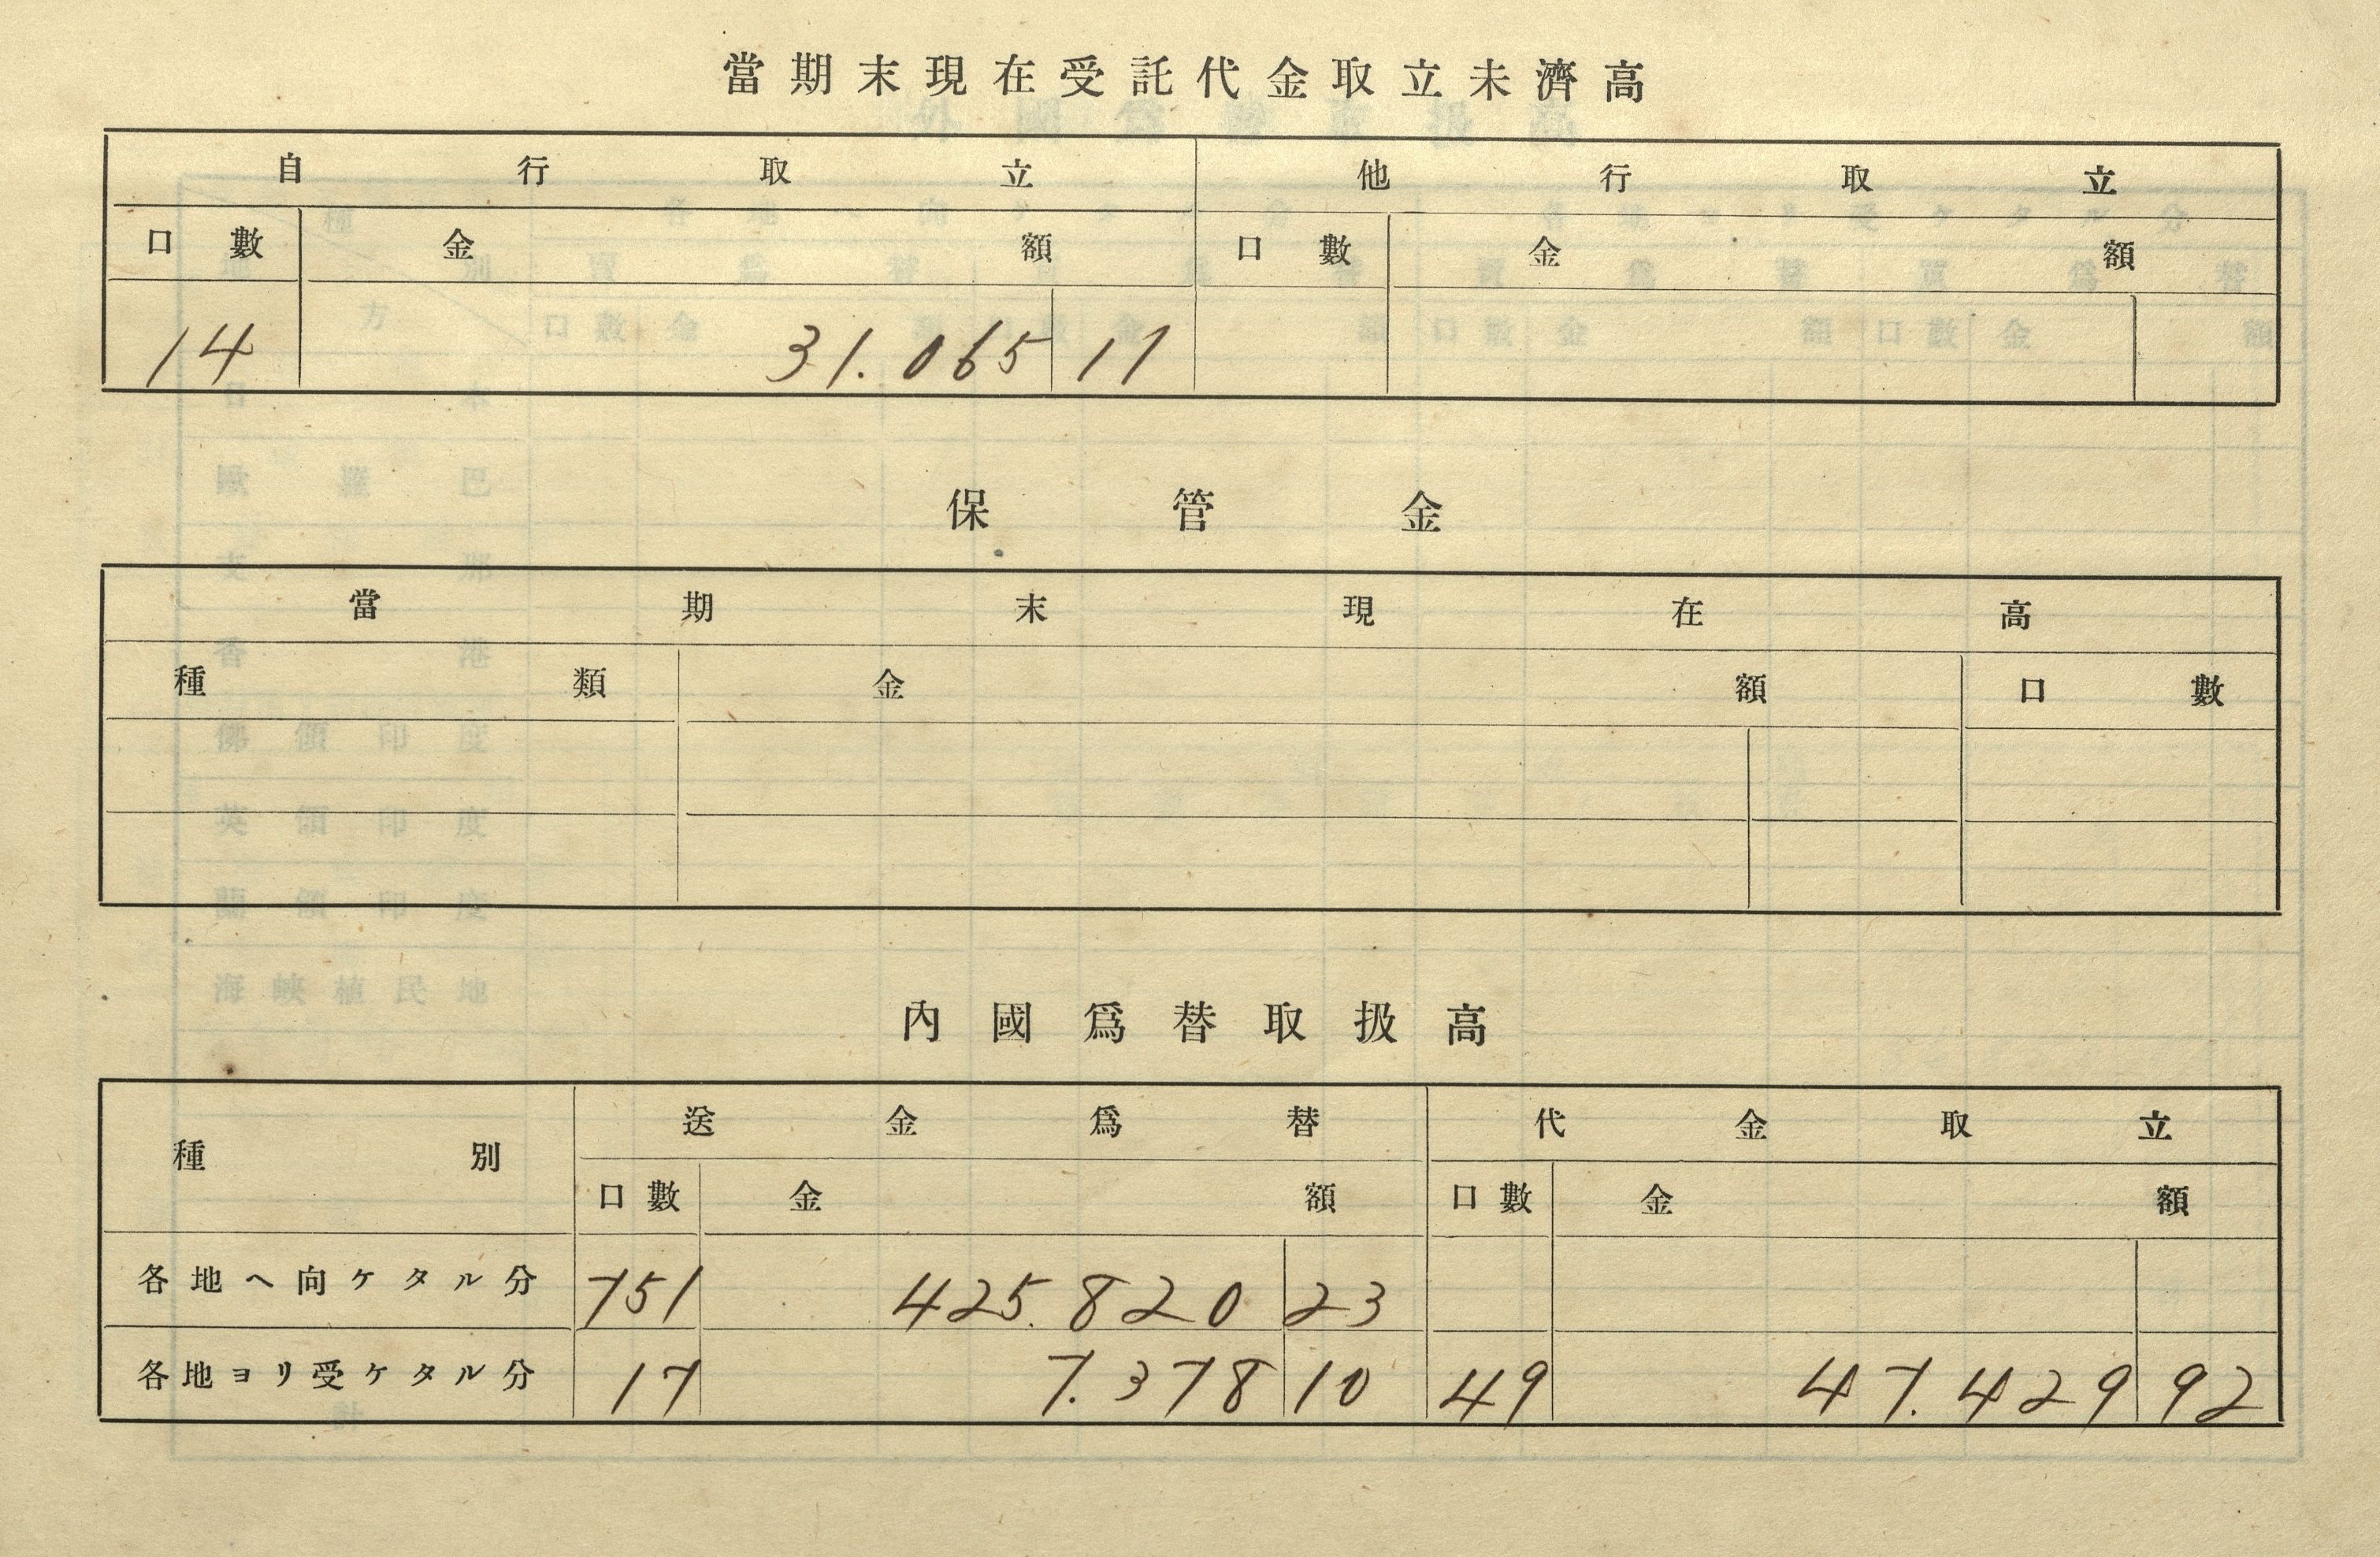 當期末現在受託代金取立未濟高
自行取立 他行取立
口數 金額 口數 金額
14 31.065 17
保管金
當期末現在高
種類 金額 口數
內國爲替取扱高
種別 送金爲替 代金取立
口數 金額 口數 金額
各地ヘ向ケタル分 751 425.820 23
各地ヨリ受ケタル分 17 7.378 10 49 47.429 92